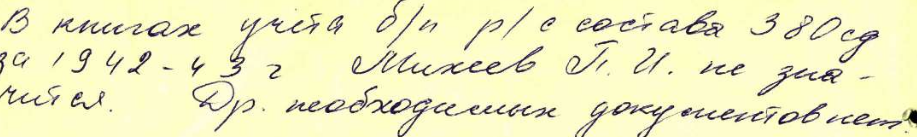 В книгах учёта б/п р/с состава 380 сд
за 1942-43 г Михеев П. И. не зна-
чится. Др. необходимых документов нет